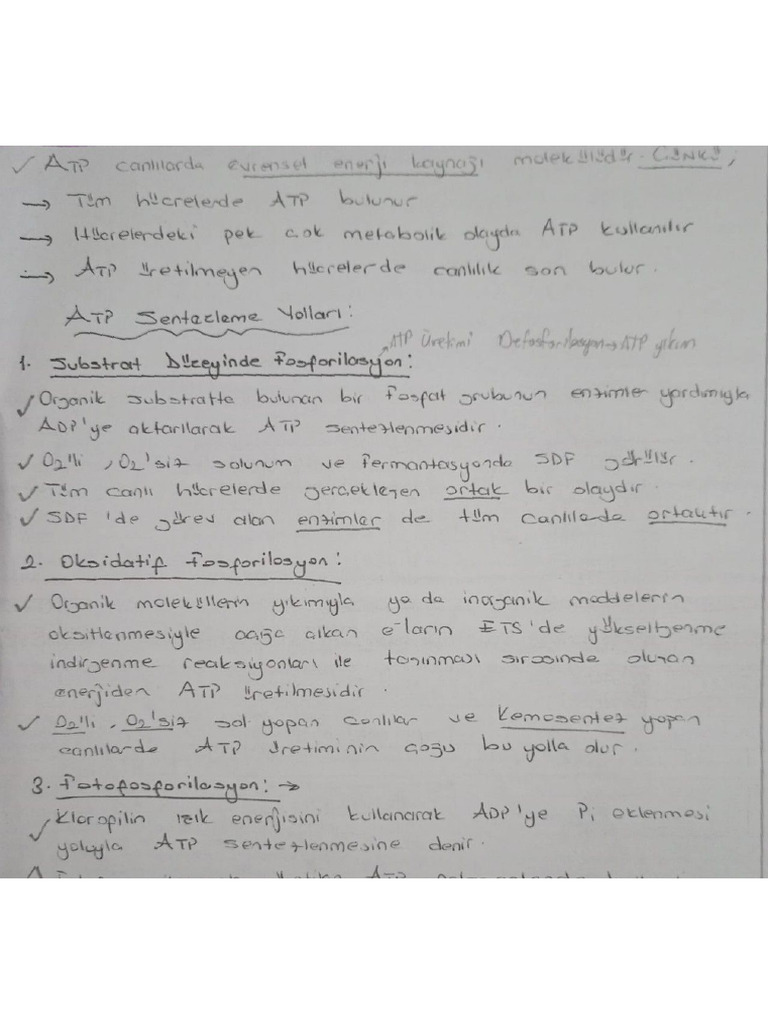 ✓ ATP canlılarda evrensel enerji kaynağı molekülüdür. ÇÜNKÜ;
→ Tüm hücrelerde ATP bulunur
→ Hücrelerdeki pek çok metabolik olayda ATP kullanılır
→ ATP üretilmeyen hücrelerde canlılık son bulur.
ATP Sentezleme Yolları:
ATP Üretimi Defosforilasyon→ATP yıkım
1. Substrat Düzeyinde Fosforilasyon:
✓ Organik substratta bulunan bir fosfat grubunun enzimler yardımıyla
ADP'ye aktarılarak ATP sentezlenmesidir.
✓ O2'li, O2'siz solunum ve Fermantasyonda SDF görülür.
✓ Tüm canlı hücrelerde gerçekleşen ortak bir olaydır.
✓ SDF'de görev alan enzimler de tüm canlılarda ortaktır.
2. Oksidatif Fosforilasyon:
✓ Organik moleküllerin yıkımıyla ya da inorganik maddelerin
oksitlenmesiyle açığa çıkan e⁻ların ETS'de yükseltgenme
indirgenme reaksiyonları ile taşınması sırasında oluşan
enerjiden ATP üretilmesidir.
✓ O2'li, O2'siz sol yapan canlılar ve Kemosentez yapan
canlılarda ATP üretiminin çoğu bu yolla olur.
3. Fotofosforilasyon: →
✓ Klorofilin ışık enerjisini kullanarak ADP'ye Pi eklenmesi
yoluyla ATP sentezlenmesine denir.